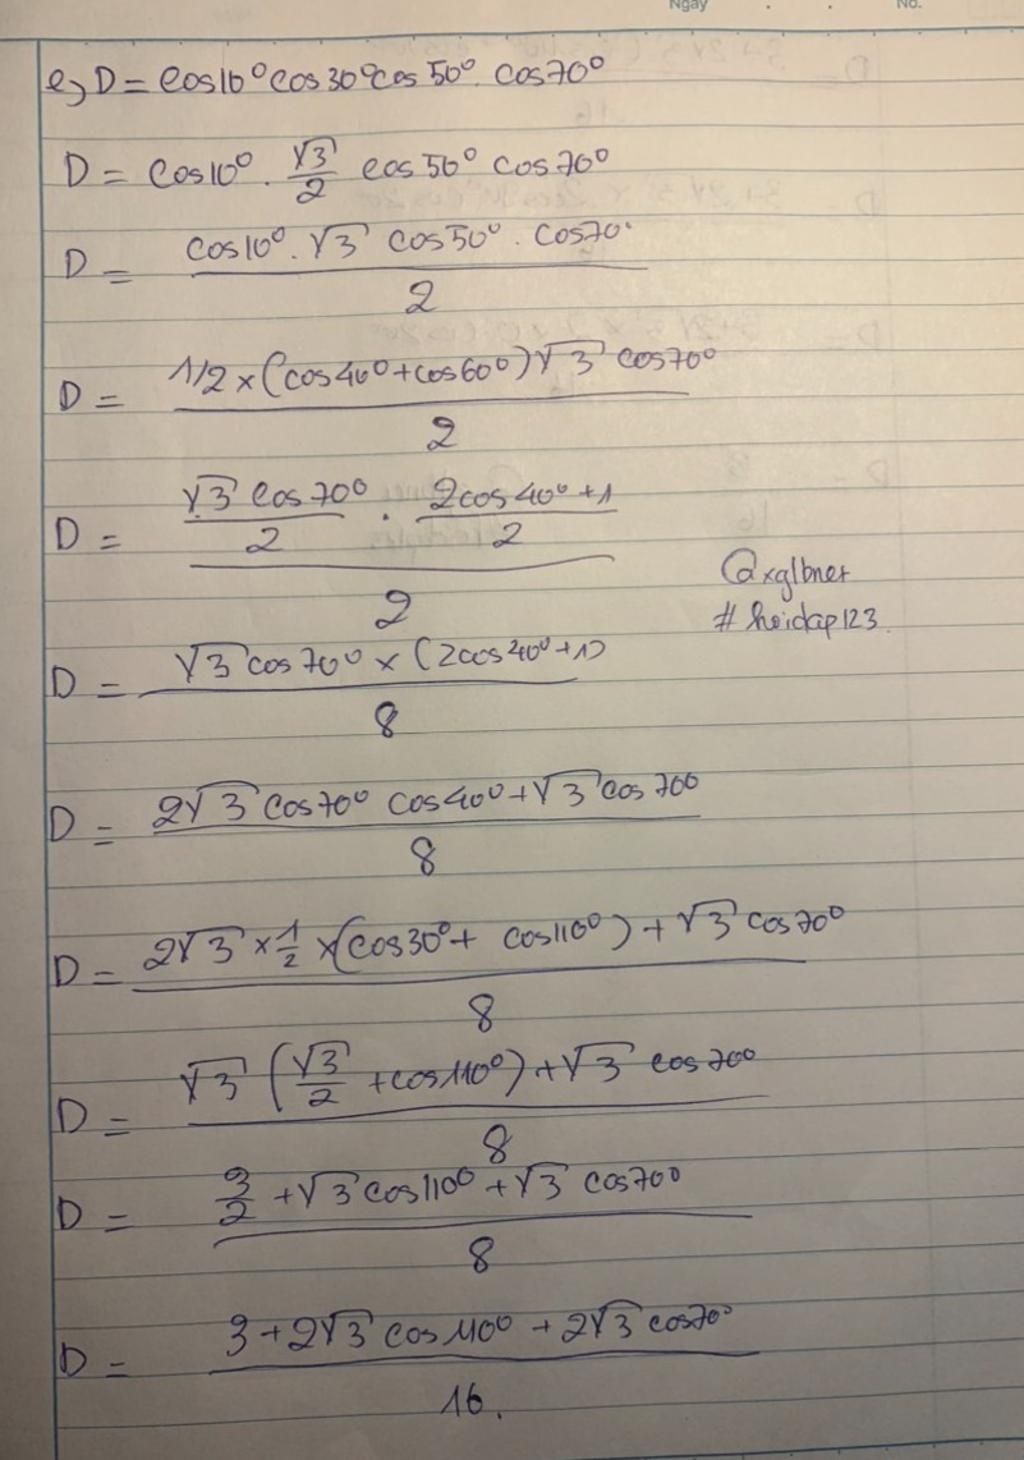 Ngày No.
e, D = cos10° cos30° cos50°. cos70°
D = cos10° . √3/2 cos50° cos70°
D = (cos10° . √3 cos50° . cos70°)/2
D = (1/2 × (cos40° + cos60°) √3 cos70°)/2
D = ((√3 cos70°)/2 . (2cos40° + 1)/2)/2
@xglbner
#heidap123
D = (√3 cos70° × (2cos40° + 1))/8
D = (2√3 cos70° cos40° + √3 cos70°)/8
D = (2√3 × 1/2 × (cos30° + cos110°) + √3 cos70°)/8
D = (√3 (√3/2 + cos110°) + √3 cos70°)/8
D = (3/2 + √3 cos110° + √3 cos70°)/8
D = (3 + 2√3 cos110° + 2√3 cos70°)/16.